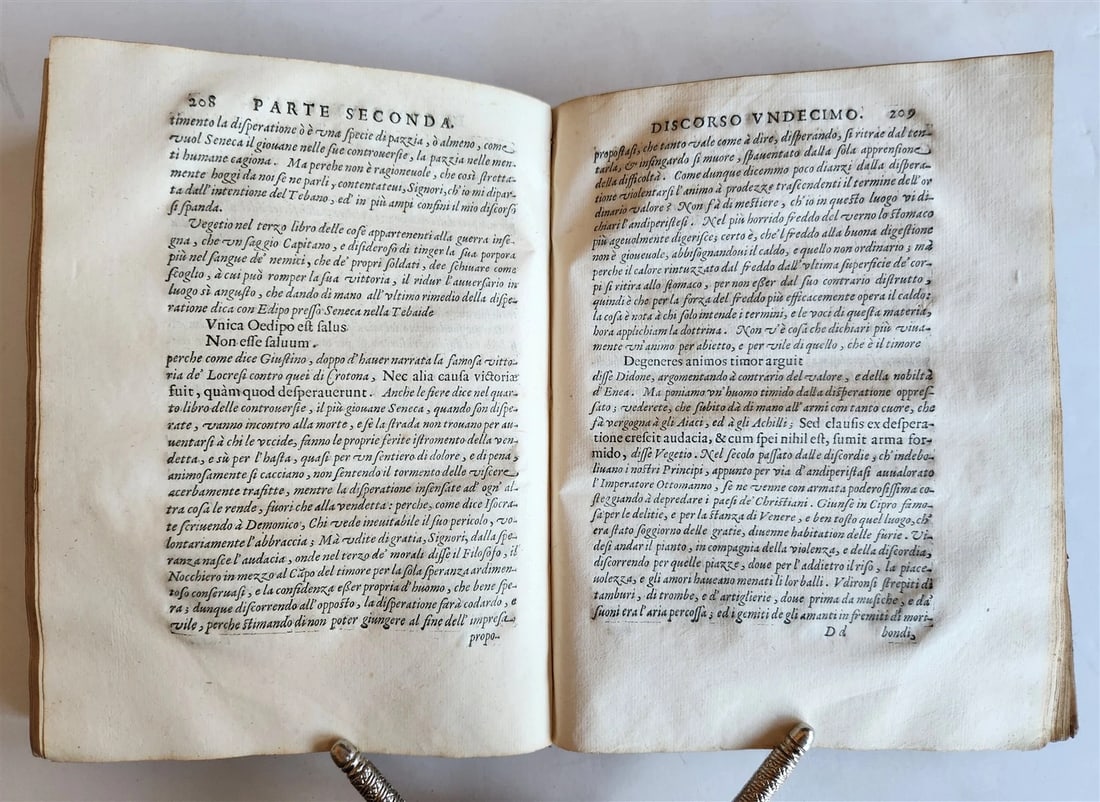 208 PARTE SECONDA.
timento la disperatione ò è vna specie di pazzia, ò almeno, come
vuol Seneca il giouane nelle sue controuersie, la pazzia nelle men-
ti humane cagiona. Ma perche non è ragioneuole, che così stretta-
mente hoggi da noi se ne parli, contentateui, Signori, ch'io mi dipar-
ta dall'intentione del Tebano, ed' in più ampi confini il mio discorso
si spanda.
Vegetio nel terzo libro delle cose appartenenti alla guerra inse-
gna, che vn saggio Capitano, e disideroso di tinger la sua porpora
più nel sangue de' nemici, che de' propri soldati, dee schiuare come
scoglio, à cui può romper la sua vittoria, il ridur l'auuersario in
luogo sì angusto, che dando di mano all'vltimo rimedio della dispe-
ratione dica con Edipo presso Seneca nella Tebaide
Vnica Oedipo est salus
Non esse saluum.
perche come dice Giustino, doppo d'hauer narrata la famosa vitto-
ria de' Locresi contro quei di Crotona, Nec alia causa victoriæ
fuit, quàm quod desperauerunt. Anche le fiere dice nel quar-
to libro delle controuersie, il più giouane Seneca, quando son dispe-
rate, vanno incontro alla morte, e se la strada non trouano per au-
uentarsi à chi le vccide, fanno le proprie ferite istromento della ven-
detta, e sù per l'hasta, quasi per vn sentiero di dolore, e di pena,
animosamente si cacciano, non sentendo il tormento delle viscere
acerbamente trafitte, mentre la disperatione insensate ad' ogn' al-
tra cosa le rende, fuori che alla vendetta: perche, come dice Isocra-
te scriuendo à Demonico, Chi vede ineuitabile il suo pericolo, vo-
lontariamente l'abbraccia; Mà vdite di gratia, Signori, dalla spe-
ranza nasce l'audacia, onde nel terzo de' morali disse il Filosofo, il
Nocchiero in mezzo al Cãpo del timore per la sola speranza ardimen-
toso conseruasi, e la confidenza eßer propria d'huomo, che bene spe-
ra; dunque discorrendo all'opposto, la disperatione sarà codardo, e
vile, perche stimando di non poter giungere al fine dell'impresa
propo-
DISCORSO VNDECIMO. 209
propostasi, che tanto vale come à dire, disperando, si ritrae dal ten-
tarla, & infingardo si muore, spauentato dalla sola apprensione
della difficoltà. Come dunque dicemmo poco dianzi dalla dispera-
tione violentarsi l'animo à prodezze trascendenti il termine dell'or
dinario valore? Non fà di mestiere, ch'io in questo luogo vi di-
chiari l'andiperistesi. Nel più horrido freddo del verno lo stomaco
più ageuolmente digerisce; certo è, che'l freddo alla buona digestione
non è gioueuole, abbisognandoui il caldo, e quello non ordinario; mà
perche il calore rintuzzato dal freddo dall'vltima superficie de' cor-
pi si ritira allo stomaco, per non eßer dal suo contrario distrutto,
quindi è che per la forza del freddo più efficacemente opera il caldo:
la cosa è nota à chi solo intende i termini, e le voci di questa materia,
hora applichiam la dottrina. Non v'è cosa che dichiari più viua-
mente vn'animo per abietto, e per vile di quello, che è il timore
Degeneres animos timor arguit
disse Didone, argomentando à contrario del valore, e della nobiltà
d'Enea. Ma poniamo vn'huomo timido dalla disperatione oppres-
sato; vederete, che subito dà di mano all'armi con tanto cuore, che
fà vergogna à gli Aiaci, ed à gli Achilli; Sed clausis ex despera-
tione crescit audacia, & cum spei nihil est, sumit arma for-
mido, disse Vegetio. Nel secolo passato dalle discordie, ch'indebo-
liuano i nostri Principi, appunto per via d'andiperistasi auualorato
l'Imperatore Ottomanno, se ne venne con armata poderosissima co-
steggiando à depredare i paesi de' Christiani. Giunse in Cipro famo-
sa per le delitie, e per la stanza di Venere, e ben tosto quel luogo, ch'
era stato soggiorno delle gratie, diuenne habitation delle furie. Vi-
desi andar il pianto, in compagnia della violenza, e della discordia,
discorrendo per quelle piazze, doue per l'addietro il riso, la piace-
uolezza, e gli amori haueano menati li lor balli. Vdironsi strepiti di
tamburi, di trombe, e d'artiglierie, doue prima da musiche, e da'
suoni era l'aria percossa; ed i gemiti de gli amanti in fremiti di mori-
Dd bondi,